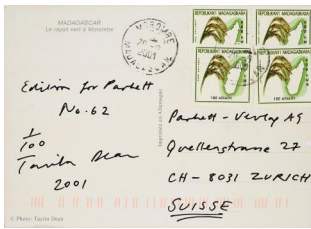 MADAGASCAR
Le rayon vert à Morombe
MOROMBE
2001
MADAGASCAR
REPOBLIKAN'I MADAGASIKARA
REPOBLIKAN'I MADAGASIKARA
Edition for Parkett
No. 62
1/100
Tacita Dean
2001
Imprimée en Allemagne
Parkett - Verlag AG
Quellenstrasse 27
CH - 8031 ZURICH
SUISSE
© Photo: Tacita Dean